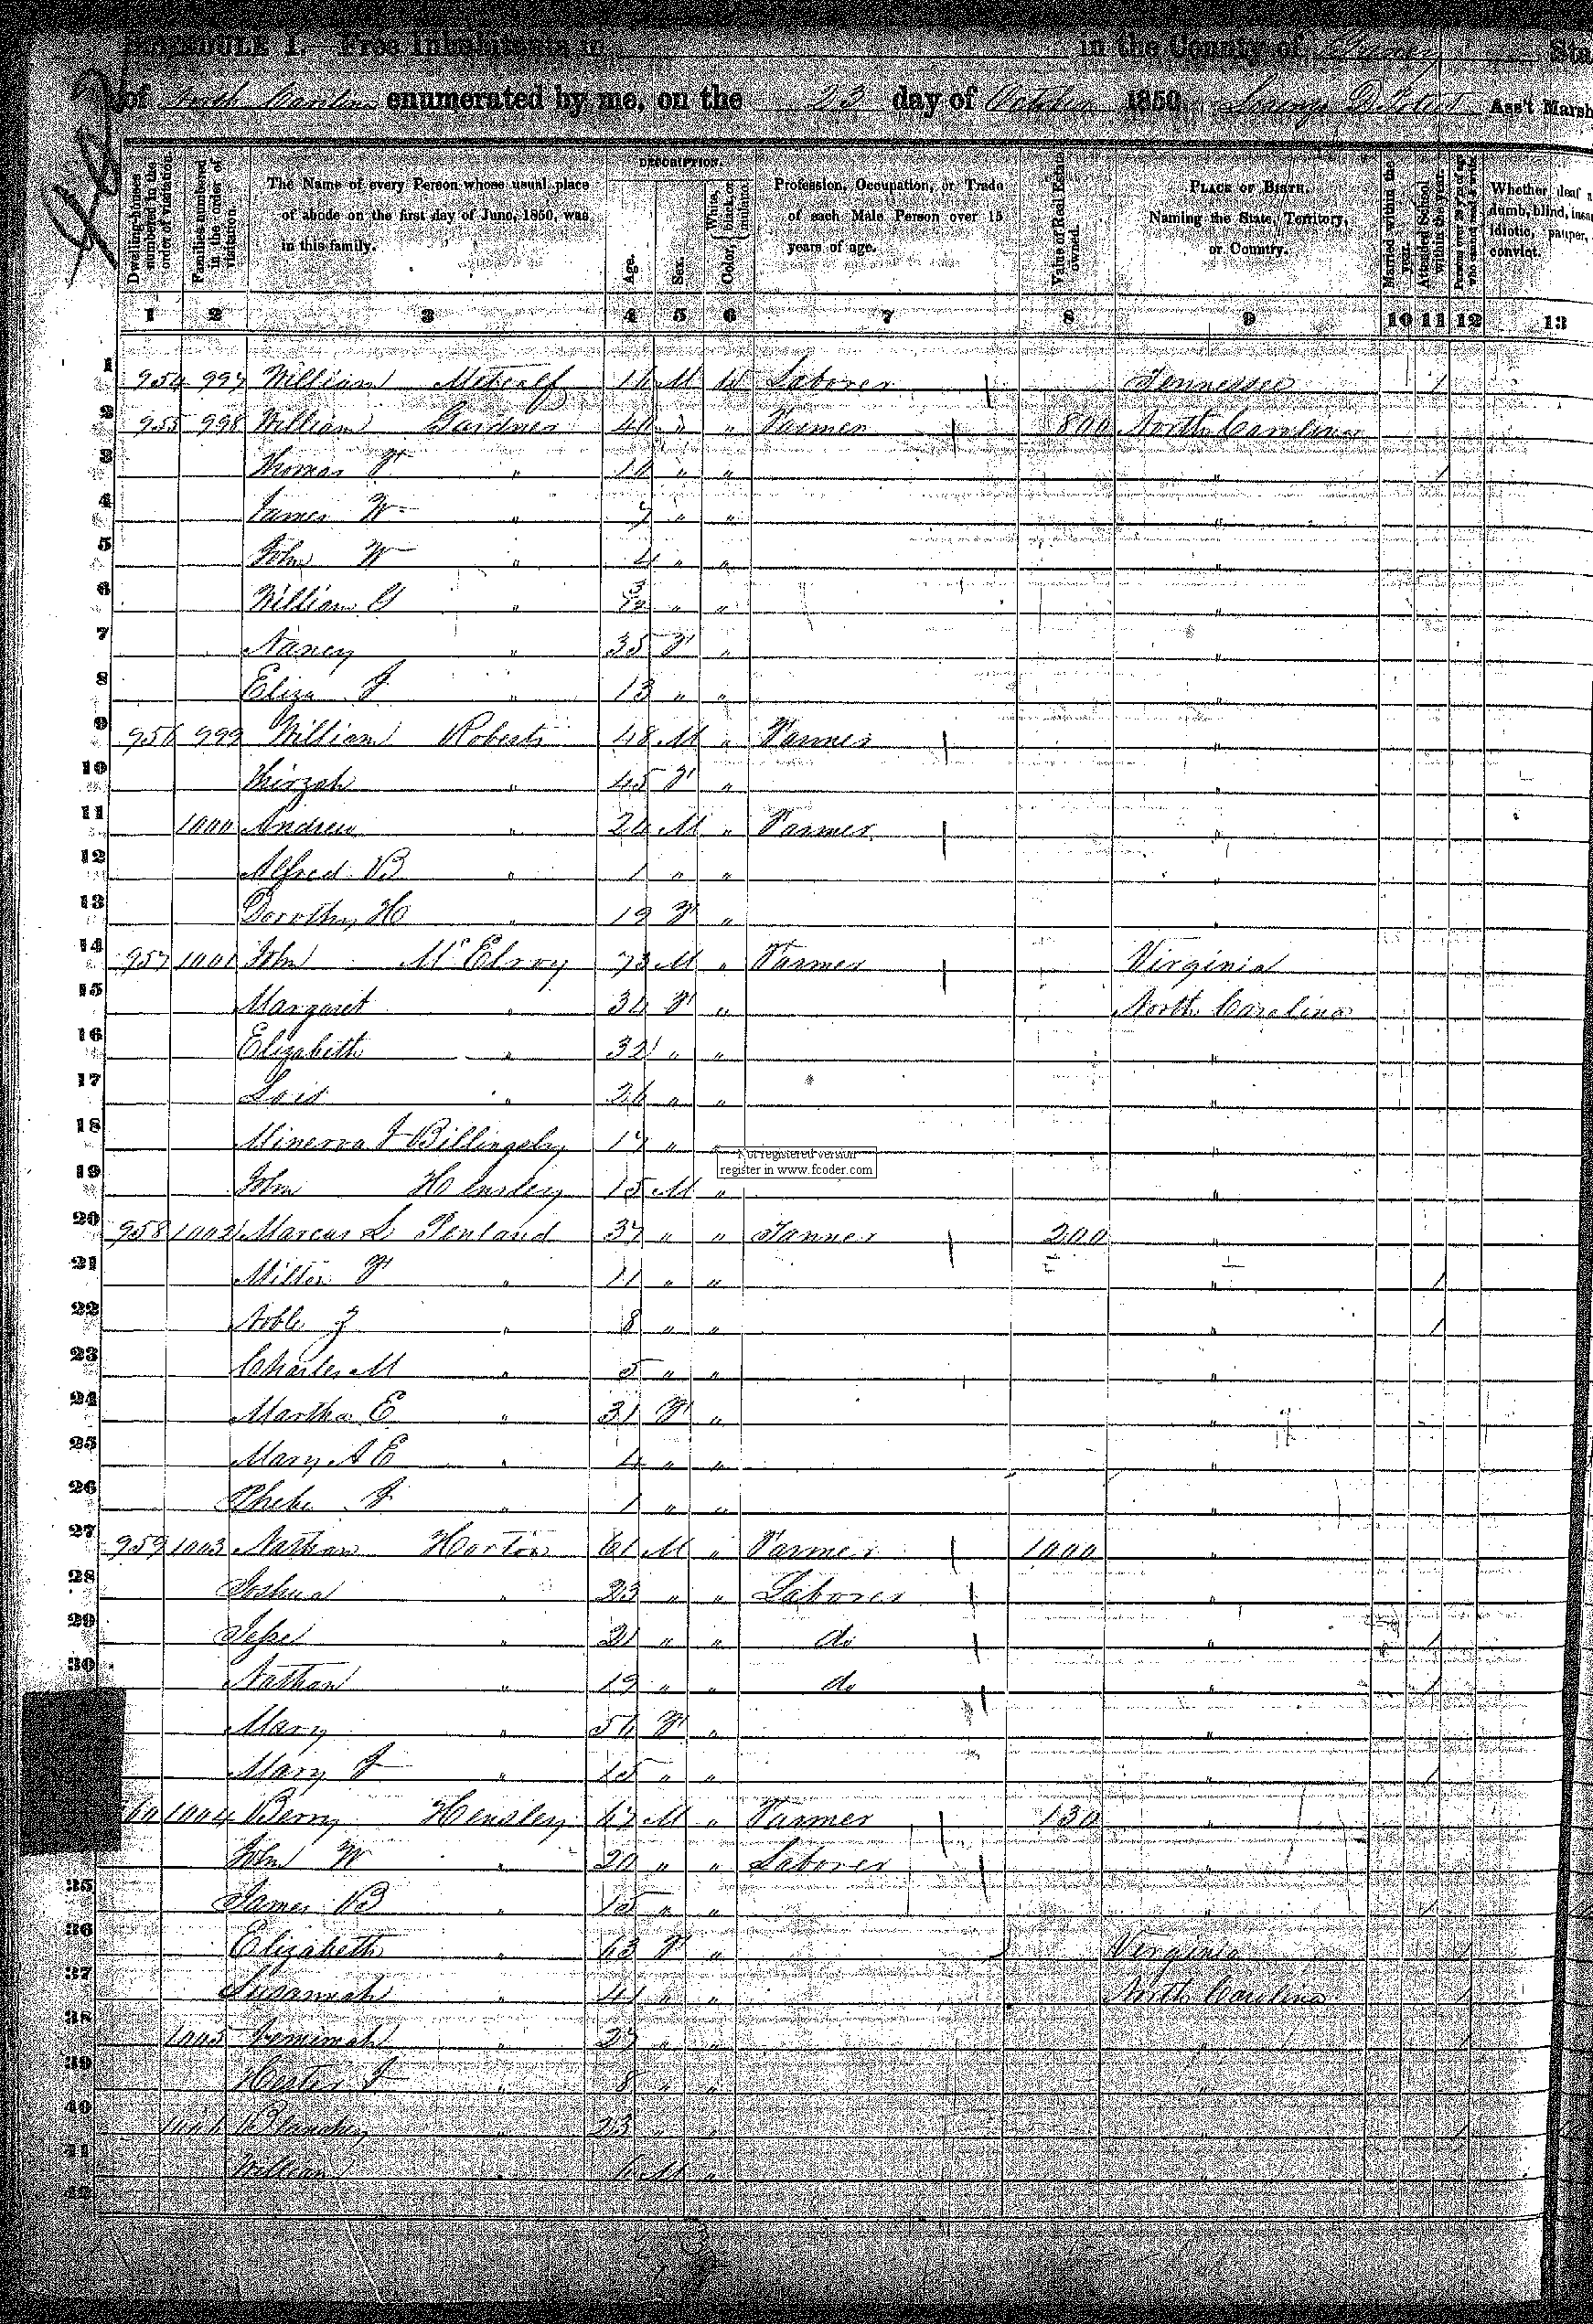 SCHEDULE I.—Free Inhabitants in in the County of Sta
of North Carolina enumerated by me, on the 23 day of October 1850. Ass't Marsh
Dwelling-houses numbered in the order of visitation.
Families numbered in the order of visitation.
The Name of every Person whose usual place of abode on the first day of June, 1850, was in this family.
DESCRIPTION.
Age.
Sex.
Color, White, black, or mulatto.
Profession, Occupation, or Trade of each Male Person over 15 years of age.
Value of Real Estate owned.
PLACE OF BIRTH. Naming the State, Territory, or Country.
Married within the year.
Attended School within the year.
Persons over 20 y'rs of age who cannot read & write.
Whether deaf a dumb, blind, insa idiotic, pauper, convict.
1 2 3 4 5 6 7 8 9 10 11 12 13
1 954 997 William Metcalf 16 M W Laborer Tennessee 1
2 955 998 William Gardner 40 " " Farmer 800 North Carolina
3 Thomas F " 10 " " " 1
4 James W " 7 " " "
5 John W " 4 " " "
6 William G " 3/12 " " "
7 Nancy " 35 F " "
8 Eliza J " 13 " " "
9 956 999 William Roberts 48 M " Farmer "
10 Thirzah " 45 F " "
11 1000 Andrew " 24 M " Farmer "
12 Alfred B " 1 " " "
13 Dorothy H " 19 F " "
14 957 1001 John McElroy 73 M " Farmer Virginia
15 Margaret " 34 F " North Carolina
16 Elizabeth " 32 " " "
17 Lois " 26 " " "
18 Minerva J Billingsly 17 " " "
Not registered version
register in www.fcoder.com
19 John Hensley 15 M " "
20 958 1002 Marcus L Penland 37 " " Tanner 200 "
21 Milton F " 11 " " " 1
22 Noble Z " 8 " " " 1
23 Charles M " 5 " " "
24 Martha E " 31 F " "
25 Mary A E " 4 " " "
26 Phebe J " 1 " " "
27 959 1003 Nathan Horton 61 M " Farmer 1000 "
28 Joshua " 23 " " Laborer "
29 Jesse " 21 " " do " 1
30 Nathan " 19 " " do " 1
Mary " 56 F " "
Mary J " 15 " " " 1
60 1004 Berry Hensley 67 M " Farmer 130 "
John W " 20 " " Laborer "
35 James B " 15 " " " 1
36 Elizabeth " 63 F " Virginia 1
37 Susannah " 41 " " North Carolina 1
38 1005 Jemimah " 27 " " " 1
39 Hester J " 8 " " "
40 1006 " 23 " " " 1
41 William " 6 M " "
42